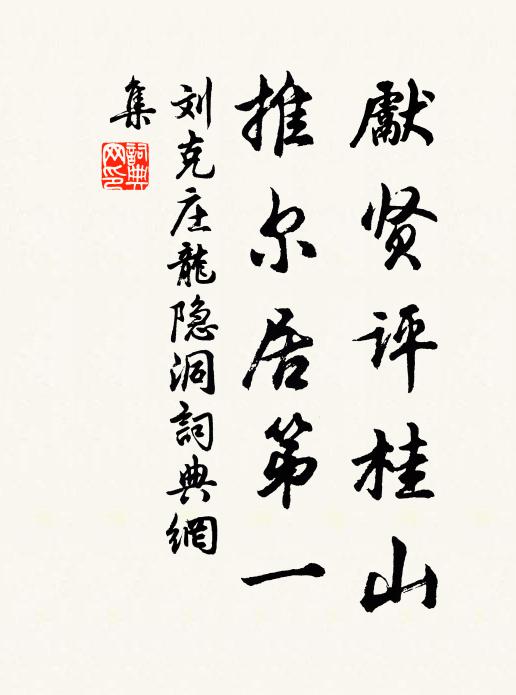 獻贤评桂山
推尔居第一
刘克庄龍隐洞詞典網
集
詞典
网印